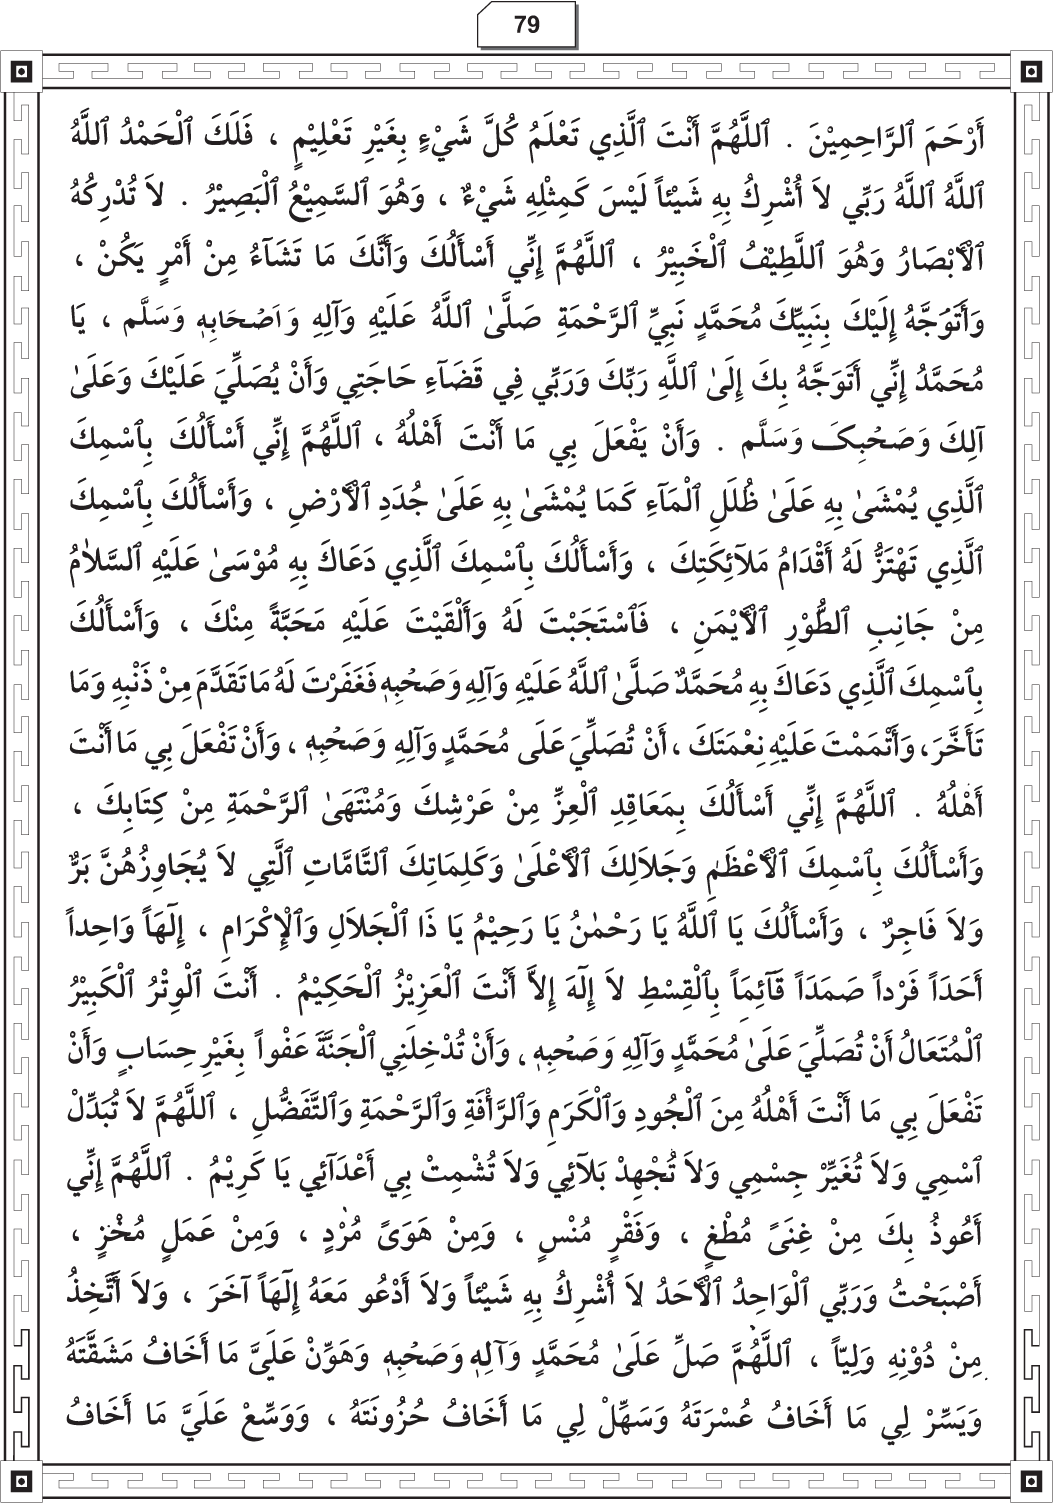 79
أَرْحَمَ ٱلرَّاحِمِيْنَ . ٱللَّهُمَّ أَنْتَ ٱلَّذِي تَعْلَمُ كُلَّ شَيْءٍ بِغَيْرِ تَعْلِيْمٍ ، فَلَكَ ٱلْحَمْدُ ٱللَّهُ
ٱللَّهُ ٱللَّهُ رَبِّي لاَ أُشْرِكُ بِهِ شَيْئاً لَيْسَ كَمِثْلِهِ شَيْءٌ ، وَهُوَ ٱلسَّمِيْعُ ٱلْبَصِيْرُ . لاَ تُدْرِكُهُ
ٱلْأَبْصَارُ وَهُوَ ٱللَّطِيْفُ ٱلْخَبِيْرُ ، ٱللَّهُمَّ إِنِّي أَسْأَلُكَ وَأَنَّكَ مَا تَشَآءُ مِنْ أَمْرٍ يَكُنْ ،
وَأَتَوَجَّهُ إِلَيْكَ بِنَبِيِّكَ مُحَمَّدٍ نَبِيِّ ٱلرَّحْمَةِ صَلَّىٰ ٱللَّهُ عَلَيْهِ وَآلِهِ وَاَصْحَابِهٖ وَسَلَّم ، يَا
مُحَمَّدُ إِنِّي أَتَوَجَّهُ بِكَ إِلَىٰ ٱللَّهِ رَبِّكَ وَرَبِّي فِي قَضَآءِ حَاجَتِي وَأَنْ يُصَلِّيَ عَلَيْكَ وَعَلَىٰ
آلِكَ وَصَحْبِكَ وَسَلَّم . وَأَنْ يَفْعَلَ بِي مَا أَنْتَ أَهْلُهُ ، ٱللَّهُمَّ إِنِّي أَسْأَلُكَ بِٱسْمِكَ
ٱلَّذِي يُمْشَىٰ بِهِ عَلَىٰ ظُلَلِ ٱلْمَآءِ كَمَا يُمْشَىٰ بِهِ عَلَىٰ جُدَدِ ٱلْأَرْضِ ، وَأَسْأَلُكَ بِٱسْمِكَ
ٱلَّذِي تَهْتَزُّ لَهُ أَقْدَامُ مَلَآئِكَتِكَ ، وَأَسْأَلُكَ بِٱسْمِكَ ٱلَّذِي دَعَاكَ بِهِ مُوْسَىٰ عَلَيْهِ ٱلسَّلاٰمُ
مِنْ جَانِبِ ٱلطُّوْرِ ٱلْأَيْمَنِ ، فَٱسْتَجَبْتَ لَهُ وَأَلْقَيْتَ عَلَيْهِ مَحَبَّةً مِنْكَ ، وَأَسْأَلُكَ
بِٱسْمِكَ ٱلَّذِي دَعَاكَ بِهِ مُحَمَّدٌ صَلَّىٰ ٱللَّهُ عَلَيْهِ وَآلِهِ وَصَحْبِهٖ فَغَفَرْتَ لَهُ مَا تَقَدَّمَ مِنْ ذَنْبِهِ وَمَا
تَأَخَّرَ، وَأَتْمَمْتَ عَلَيْهِ نِعْمَتَكَ ، أَنْ تُصَلِّيَ عَلَى مُحَمَّدٍ وَآلِهِ وَصَحْبِهٖ ، وَأَنْ تَفْعَلَ بِي مَا أَنْتَ
أَهْلُهُ . ٱللَّهُمَّ إِنِّي أَسْأَلُكَ بِمَعَاقِدِ ٱلْعِزِّ مِنْ عَرْشِكَ وَمُنْتَهَىٰ ٱلرَّحْمَةِ مِنْ كِتَابِكَ ،
وَأَسْأَلُكَ بِٱسْمِكَ ٱلْأَعْظَمِ وَجَلاَلِكَ ٱلْأَعْلَىٰ وَكَلِمَاتِكَ ٱلتَّامَّاتِ ٱلَّتِي لاَ يُجَاوِزُهُنَّ بَرٌّ
وَلاَ فَاجِرٌ ، وَأَسْأَلُكَ يَا ٱللَّهُ يَا رَحْمٰنُ يَا رَحِيْمُ يَا ذَا ٱلْجَلاَلِ وَٱلْإِكْرَامِ ، إِلَهَاً وَاحِداً
أَحَدَاً فَرْداً صَمَدَاً قَآئِمَاً بِٱلْقِسْطِ لاَ إِلَهَ إِلاَّ أَنْتَ ٱلْعَزِيْزُ ٱلْحَكِيْمُ . أَنْتَ ٱلْوِتْرُ ٱلْكَبِيْرُ
ٱلْمُتَعَالُ أَنْ تُصَلِّيَ عَلَىٰ مُحَمَّدٍ وَآلِهِ وَصَحْبِهٖ ، وَأَنْ تُدْخِلَنِي ٱلْجَنَّةَ عَفْواً بِغَيْرِ حِسَابٍ وَأَنْ
تَفْعَلَ بِي مَا أَنْتَ أَهْلُهُ مِنَ ٱلْجُودِ وَٱلْكَرَمِ وَٱلرَّأْفَةِ وَٱلرَّحْمَةِ وَٱلتَّفَضُّلِ ، ٱللَّهُمَّ لاَ تُبَدِّلْ
ٱسْمِي وَلاَ تُغَيِّرْ جِسْمِي وَلاَ تُجْهِدْ بَلآئِي وَلاَ تُشْمِتْ بِي أَعْدَآئِي يَا كَرِيْمُ . ٱللَّهُمَّ إِنِّي
أَعُوذُ بِكَ مِنْ غِنَىً مُطْغٍ ، وَفَقْرٍ مُنْسٍ ، وَمِنْ هَوَىً مُرْدٍ ، وَمِنْ عَمَلٍ مُخْزٍ ،
أَصْبَحْتُ وَرَبِّي ٱلْوَاحِدُ ٱلْأَحَدُ لاَ أُشْرِكُ بِهِ شَيْئاً وَلاَ أَدْعُو مَعَهُ إِلَهَاً آخَرَ ، وَلاَ أَتَّخِذُ
مِنْ دُوْنِهِ وَلِيّاً ، ٱللَّهُمَّ صَلِّ عَلَىٰ مُحَمَّدٍ وَآلِهٖ وَصَحْبِهٖ وَهَوِّنْ عَلَيَّ مَا أَخَافُ مَشَقَّتَهُ
وَيَسِّرْ لِي مَا أَخَافُ عُسْرَتَهُ وَسَهِّلْ لِي مَا أَخَافُ حُزُونَتَهُ ، وَوَسِّعْ عَلَيَّ مَا أَخَافُ